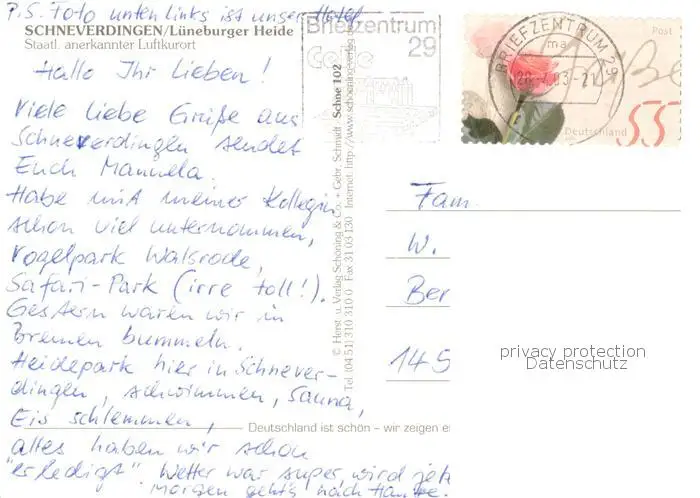 P.S. Foto unten links ist unser Hotel
SCHNEVERDINGEN/Lüneburger Heide
Staatl. anerkannter Luftkurort
Hallo Ihr Lieben!
Viele liebe Grüße aus
Schneverdingen sendet
Euch Manuela.
Habe mit meiner Kollegin
schon viel unternommen,
Vogelpark Walsrode,
Safari-Park (irre toll!).
Gestern waren wir in
Bremen bummeln.
Heidepark hier in Schnever-
dingen, schwimmen, Sauna,
Eis schlemmen,
alles haben wir schon
"erledigt". Wetter war super, wird jetz
Morgen geht's nach Hause.
Deutschland ist schön – wir zeigen es
© Herst. u. Verlag Schöning & Co. + Gebr. Schmidt · Schne 102
Tel. (04 51) 310 310-0 Fax 31 03 130 Internet: http://www.schoening-verlag
Briefzentrum
29
BRIEFZENTRUM 29
ma
Post
Deutschland
55
Fam.
W.
Ber
145
privacy protection
Datenschutz